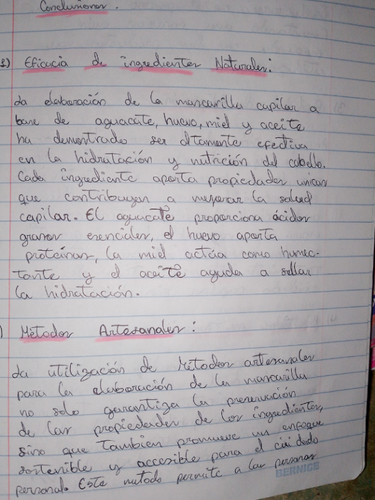 Conclusiones.
1) Eficacia de ingredientes Naturales:
La elaboración de la mascarilla capilar a
base de aguacate, huevo, miel y aceite
ha demostrado ser altamente efectiva
en la hidratación y nutrición del cabello.
Cada ingrediente aporta propiedades unicas
que contribuyen a mejorar la salud
capilar. El aguacate proporciona ácidos
grasos esenciales, el huevo aporta
proteínas, la miel actúa como humec-
tante y el aceite ayuda a sellar
la hidratación.
) Métodos Artesanales:
La utilización de Métodos artesanales
para la elaboración de la mascarilla
no solo garantiza la preservación
de las propiedades de los ingredientes,
sino que tambien promueve un enfoque
sostenible y accesible para el cuidado
personal Este metodo permite a las personas
BERNICE